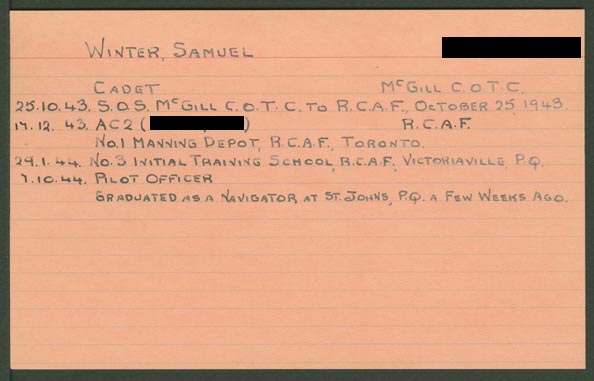 WINTER, SAMUEL
CADET McGILL C.O.T.C.
25.10.43. S.O.S. McGILL C.O.T.C. TO R.C.A.F., OCTOBER 25, 1943.
17.12.43. AC2 ( ) R.C.A.F.
No.1 MANNING DEPOT, R.C.A.F., TORONTO.
29.1.44. No.3 INITIAL TRAINING SCHOOL, R.C.A.F., VICTORIAVILLE, P.Q.
7.10.44. PILOT OFFICER
GRADUATED AS A NAVIGATOR AT ST. JOHNS, P.Q. A FEW WEEKS AGO.